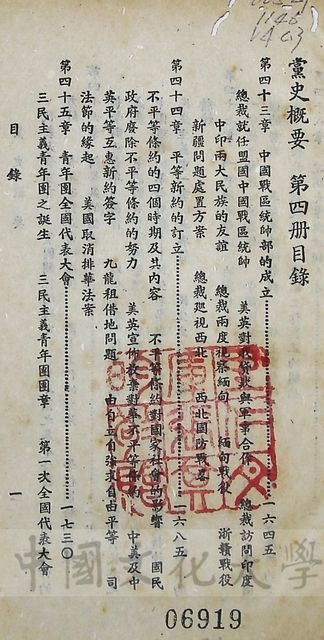 黨史概要　第四册目錄
第四十三章　中國戰區統帥部的成立……一六四五
總裁就任盟國中國戰區統帥　美英對我貸款與軍事合作　總裁訪問印度
中印兩大民族的友誼　總裁兩度視察緬甸　緬甸戰役　浙贛戰役
新疆問題處置方案　總裁巡視西北　西北國防戰略
第四十四章　平等新約的訂立……一六八五
不平等條約的四個時期及其內容　不平等條約對國家社會的影響　國民
政府廢除不平等條約的努力　美英宣佈放棄對華不平等條約　中美及中
英平等互惠新約簽字　九龍租借地問題　由自立自強求自由平等　司
法節的緣起　美國取消排華法案
第四十五章　青年團全國代表大會……一七三〇
三民主義青年團之誕生　三民主義青年團團章　第一次全國代表大會
目錄
一
中國文化大學
06919